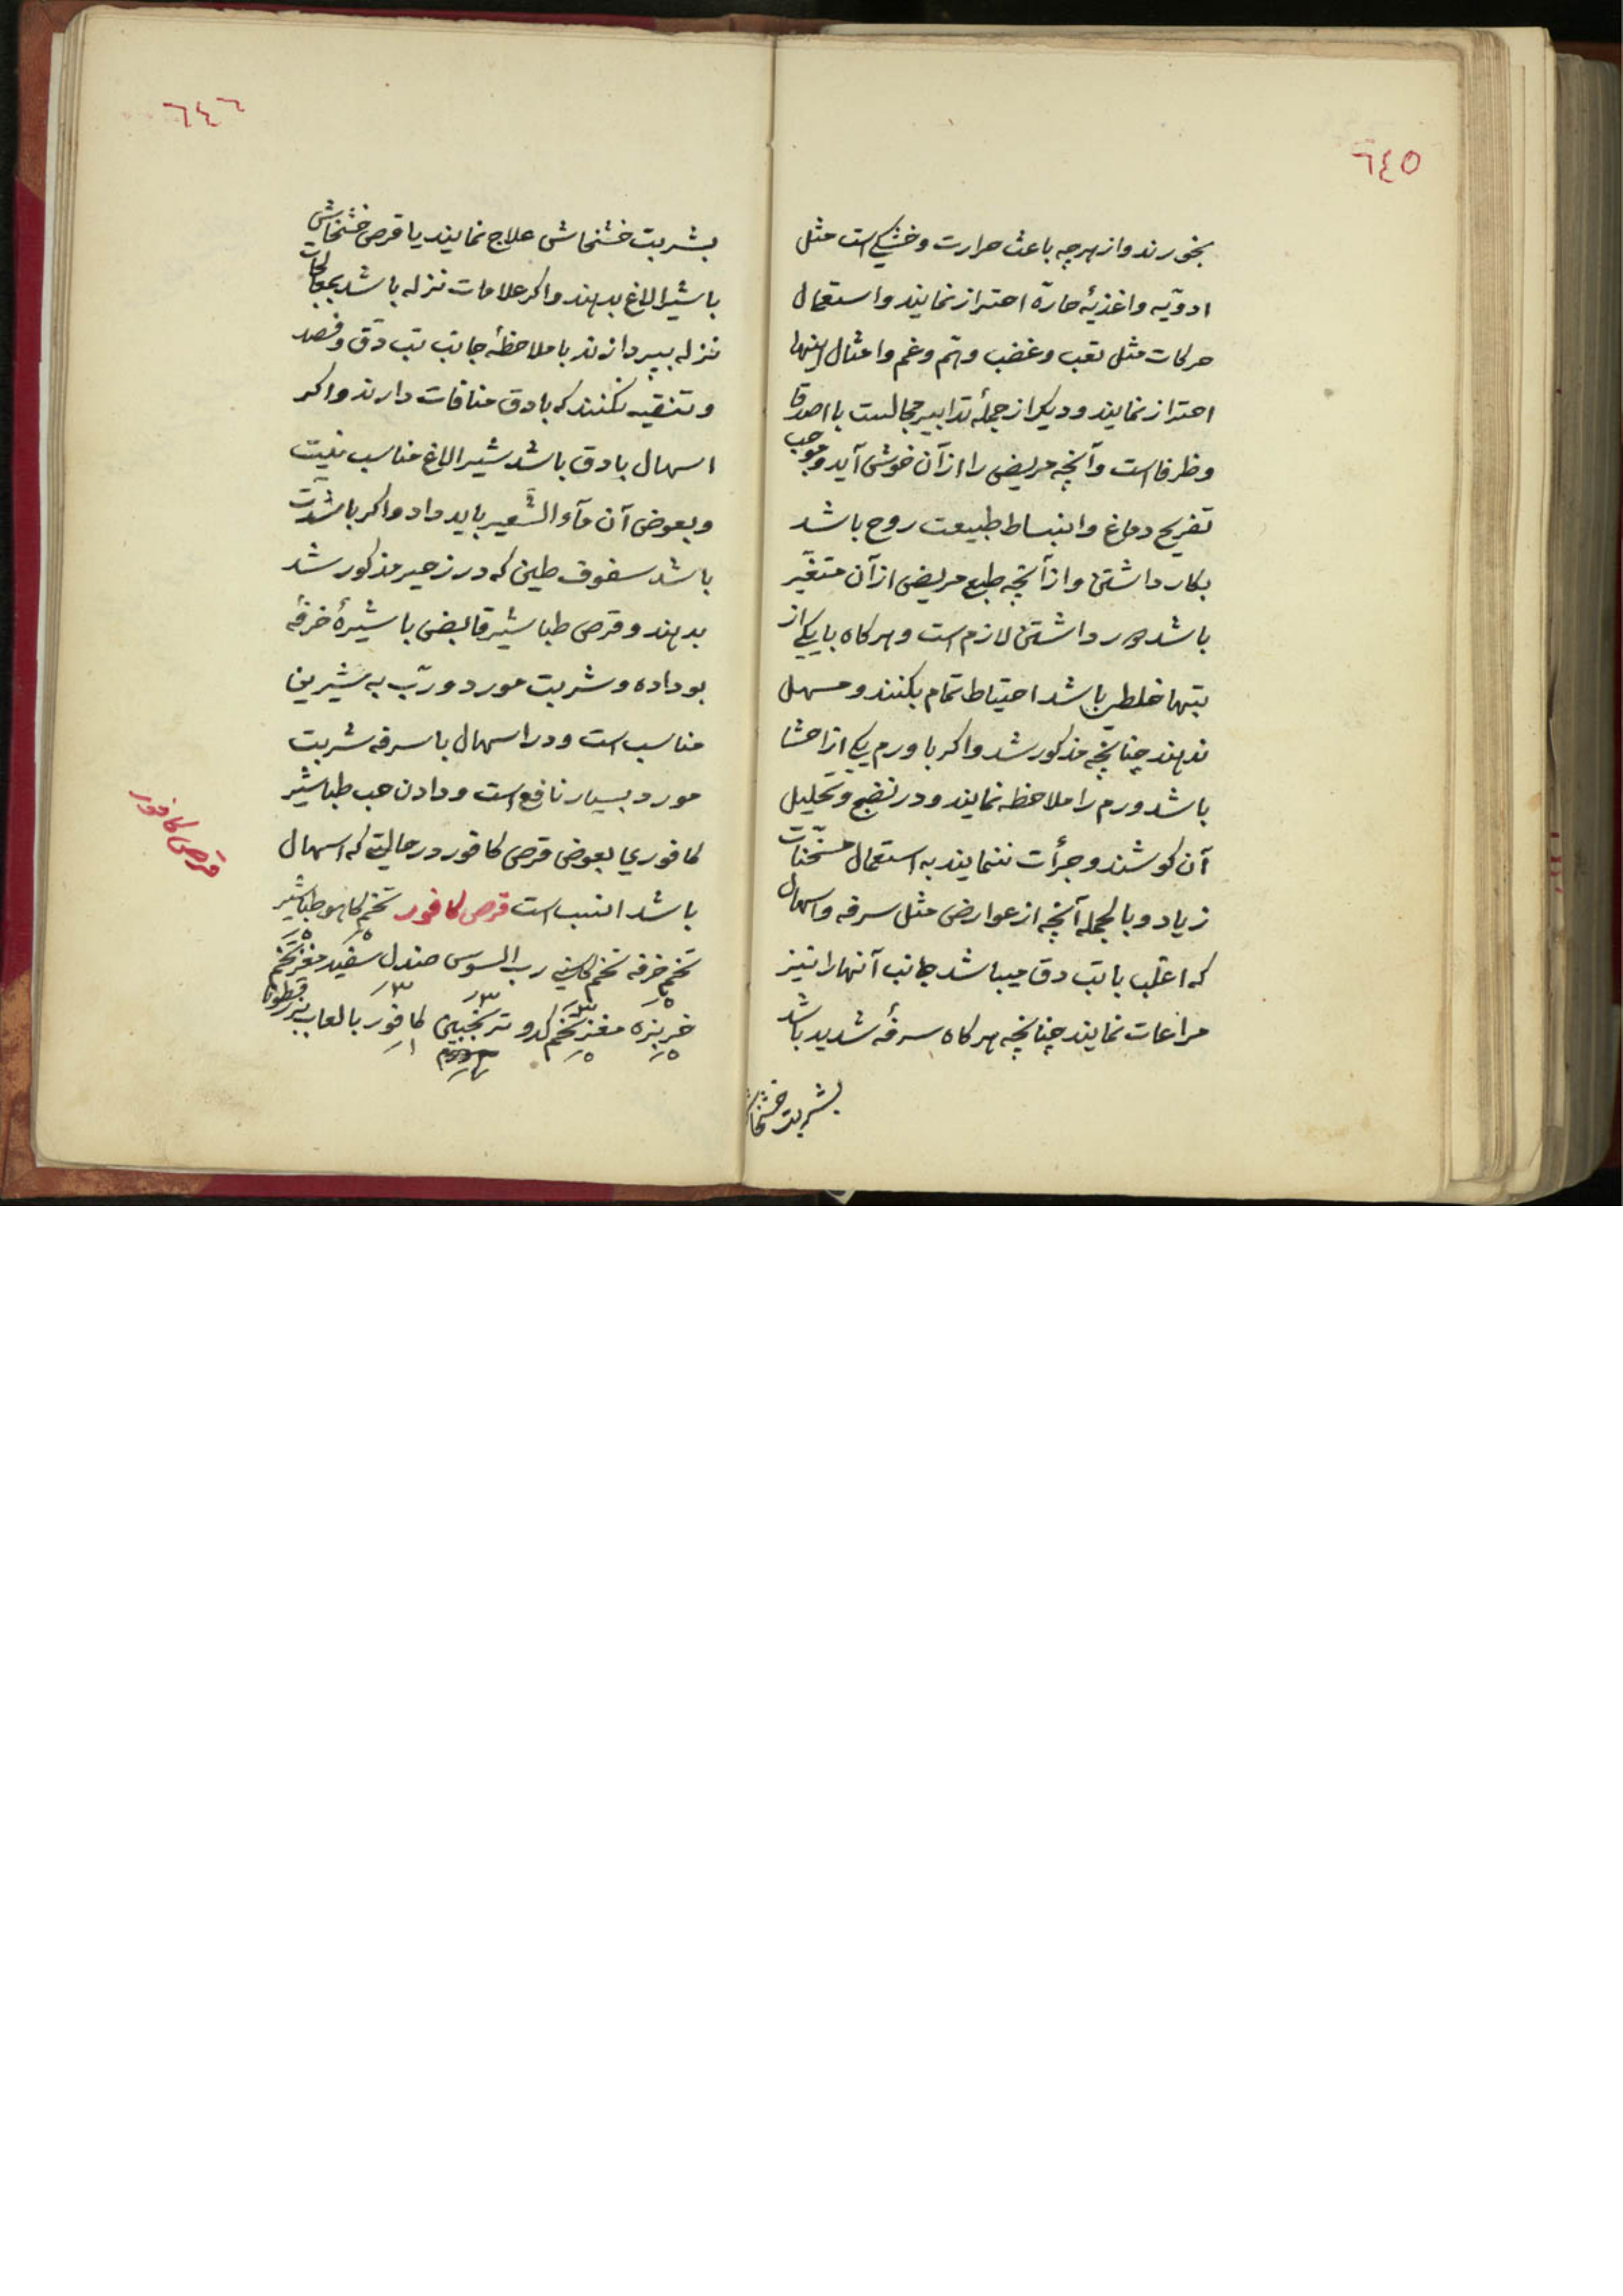 ٦٤٥
بخورند و از هرچه باعث حرارت و خشکی است مثل
ادویه و اغذیهٔ حارّه احتراز نمایند و استعمال
حرکات مثل تعب و غضب و همّ و غم و امثال اینها
احتراز نمایند و دیکر از جملهٔ تدابیر مجالست با اصدقا
و ظرفا است و آنچه مریض را از آن خوش آید و موجب
تفریح دماغ و انبساط طبیعت روح باشد
بکار داشتن و از آنچه طبع مریض از آن متغیّر
باشد دور داشتن لازم است و هرکاه با یکی از
تبها خلطی باشد احتیاط تمام بکنند و مسهل
ندهند چنانچه مذکور شد و اکر با ورم یکی از احشا
باشد ورم را ملاحظه نمایند و در نضج و تحلیل
آن کوشند و جرأت ننمایند به استعمال مسخّنات
زیاد و بالجمله آنچه از عوارض مثل سرفه و اسهال
که اغلب با تب دق میباشد جانب آنها را نیز
مراعات نمایند چنانچه هرکاه سرفهٔ شدید باشد
بشربت خشخاش
٦٤٦
بشربت خشخاش علاج نمایند یا قرص خشخاش
با شیر الاغ بدهند و اکر علامات نزله باشد بمعالجات
نزله بپردازند با ملاحظهٔ جانب تب دق و فصد
و تنقیه نکنند که با دق منافات دارند و اکر
اسهال با دق باشد شیر الاغ مناسب نیست
و بعوض آن مآء الشعیر باید داد و اکر با شدّت
باشد سفوف طین که در زحیر مذکور شد
بدهند و قرص طباشیر قابض با شیرهٔ خرفهٔ
بو داده و شربت مورد و ربّ به شیرین
مناسب است و در اسهال با سرفه شربت
مورد بسیار نافع است و دادن حب طباشیر
کافوری بعوض قرص کافور در حالیته که اسهال
باشد انسب است قرص کافور تخم کاهو طباشیر
تخم خرفه تخم کاسنی رب السوس صندل سفید مغز تخم
خربزه مغز تخم کدو ترنجبین کافور با لعاب بزرقطونا
قرص کافور